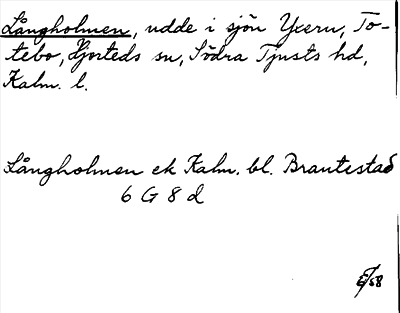 Långholmen, udde i sjön Yxern, To-
tebo, Hjorteds sn, Södra Tjusts hd,
Kalm. l.
Långholmen ek Kalm. bl. Brantestad
6 G 8 d
E/58